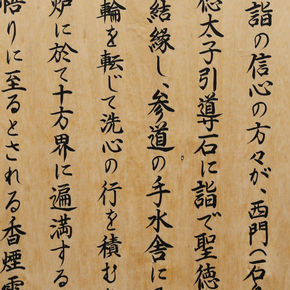 詣の信心の方々が、西門(一石鳥
徳太子引導石に詣で聖徳
結縁し、参道の手水舎に
輪を転じて洗心の行を積む
炉に於て十方界に遍満する
悟りに至るとされる香煙